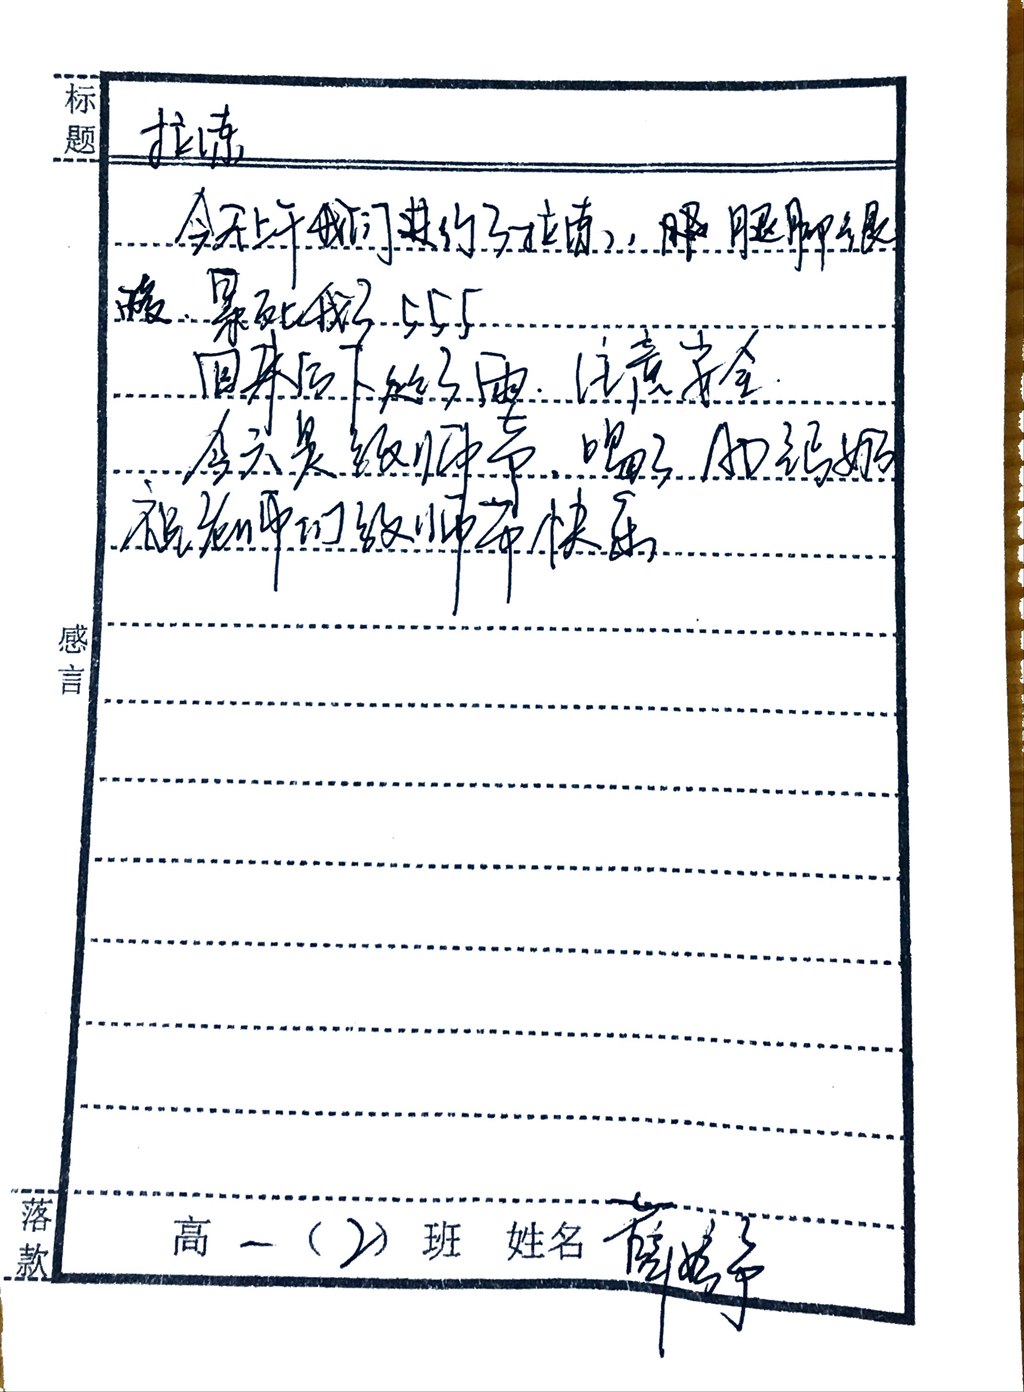 标题
拉练
今天上午我们进行了拉练，腿脚很
酸、累死我了555
回来后下起了雨.注意安全.
今天是教师节、喝了
祝老师们教师节快乐
感言
落款
高一（2）班 姓名 薛